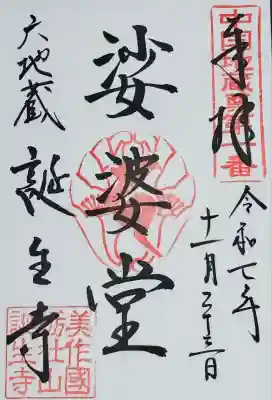 奉拝
令和七年
十一月二十三日
娑婆堂
六地蔵
誕生寺
美作國
栃社山
誕生寺